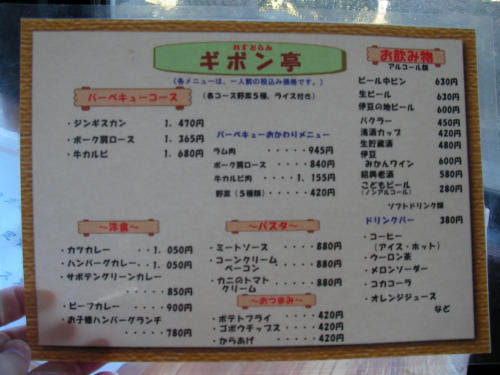 れすとらん
ギボン亭
(各メニューは、一人前の税込み価格です。)
(各コース野菜5種、ライス付き)
バーベキューコース
・ジンギスカン 1.470円
・ポーク肩ロース 1.365円
・牛カルビ 1.680円
バーベキューおかわりメニュー
ラム肉 ・・・・・945円
ポーク肩ロース ・・・・840円
牛カルビ肉 ・・・1.155円
野菜(5種類) ・・・・・420円
～洋食～
・カツカレー ・・1.050円
・ハンバーグカレー・・1.050円
・サボテングリーンカレー
・・・・・850円
・ビーフカレー ・・・・900円
・お子様ハンバーグランチ
・・・・・780円
～パスタ～
・ミートソース ・・・・・880円
・コーンクリーム
ベーコン ・・・・880円
・カニのトマト
クリーム ・・・・880円
～おつまみ～
・ポテトフライ ・・・・420円
・ゴボウチップス・・・・420円
・からあげ ・・・・420円
お飲み物
アルコール類
ビール中ビン 630円
生ビール 630円
伊豆の地ビール 600円
バクラー 450円
清酒カップ 420円
生貯蔵酒 480円
伊豆
みかんワイン 600円
紹興老酒 580円
こどもビール 280円
(ノンアルコール)
ソフトドリンク類
ドリンクバー 380円
・コーヒー
(アイス・ホット)
・ウーロン茶
・メロンソーダー
・コカコーラ
・オレンジジュース
など